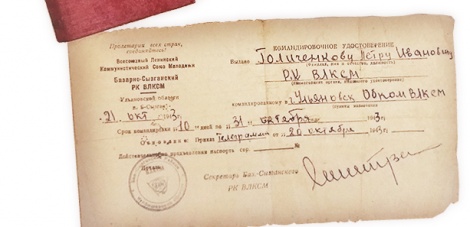 Пролетарии всех стран,
соединяйтесь!
Всесоюзный Ленинский
Коммунистический Союз Молодежи
Базарно-Сызганский
РК ВЛКСМ
Ульяновской области
21 окт 1943 г.
КОМАНДИРОВОЧНОЕ УДОСТОВЕРЕНИЕ
Выдано Голиченкову Петру Ивановичу
РК ВЛКСМ
командированному в г. Ульяновск Обком ВЛКСМ
Срок командировки 10 дней по 31 октября 1943 г.
Основание: Приказ Телеграмма от 20 октября 1943 г.
Действительно по предъявлении паспорта сер. №
Печать
Секретарь Баз.-Сызганского
РК ВЛКСМ